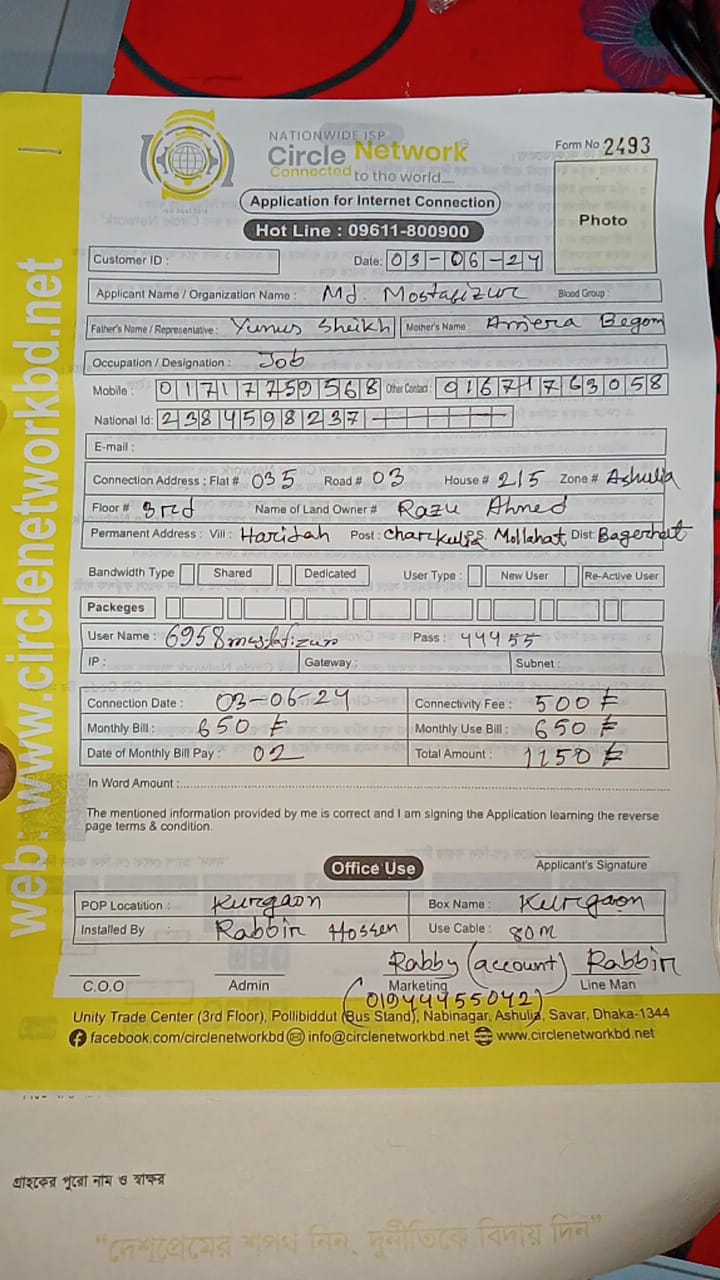 NATIONWIDE ISP
Circle Network
Connected to the world....
Form No 2493
Application for Internet Connection
Hot Line : 09611-800900
Photo
Customer ID :
Date: 03-06-24
Applicant Name / Organization Name : Md. Mostafizur Blood Group :
Father's Name / Representative : Yunus Sheikh Mother's Name : Amera Begom
Occupation / Designation : Job
Mobile : 01717759568 Other Contact : 01671763058
National Id: 2384598237
E-mail :
Connection Address : Flat # 035 Road # 03 House # 215 Zone # Ashulia
Floor # 3rd Name of Land Owner # Razu Ahmed
Permanent Address : Vill : Haridah Post : Mollahat Dist: Bagerhat
Bandwidth Type Shared Dedicated User Type : New User Re-Active User
Packeges
User Name : 6958mustafizur Pass : 44455
IP : Gateway : Subnet :
Connection Date : 03-06-24 Connectivity Fee : 500 ৳
Monthly Bill : 650 ৳ Monthly Use Bill : 650 ৳
Date of Monthly Bill Pay : 02 Total Amount : 1150 ৳
In Word Amount :
The mentioned information provided by me is correct and I am signing the Application learning the reverse
page terms & condition.
Applicant's Signature
Office Use
POP Locatition : Kurgaon Box Name : Kurgaon
Installed By : Rabbir Hossen Use Cable : 80m
Rabby (account) Rabbir
C.O.O Admin Marketing Line Man
(01944955042)
Unity Trade Center (3rd Floor), Pollibiddut (Bus Stand), Nabinagar, Ashulia, Savar, Dhaka-1344
facebook.com/circlenetworkbd info@circlenetworkbd.net www.circlenetworkbd.net
web: www.circlenetworkbd.net
গ্রাহকের পুরো নাম ও স্বাক্ষর
“দেশপ্রেমের শপথ নিন, দুর্নীতিকে বিদায় দিন”